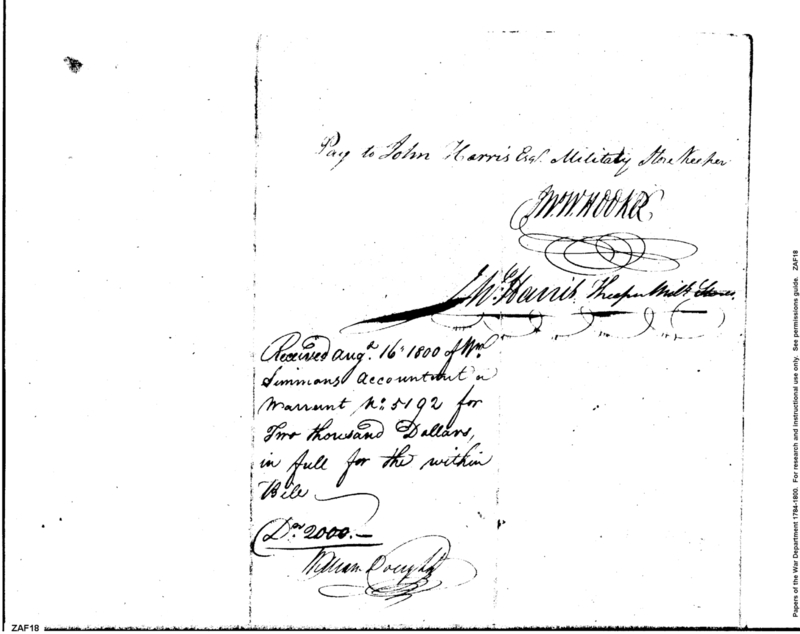 Pay to John Harris Esqr. Military Store Keeper
Wm. W. HOOKER
Jno. Harris. Keeper Mily. Stores.
Received Augt. 16th 1800 of Wm.
Simmons Accountant a
Warrant No. 5192 for
Two thousand Dollars,
in full for the within
Bill
Drs. 2000.—
William Dought
ZAF18
Papers of the War Department 1784-1800. For research and instructional use only. See permissions guide. ZAF18